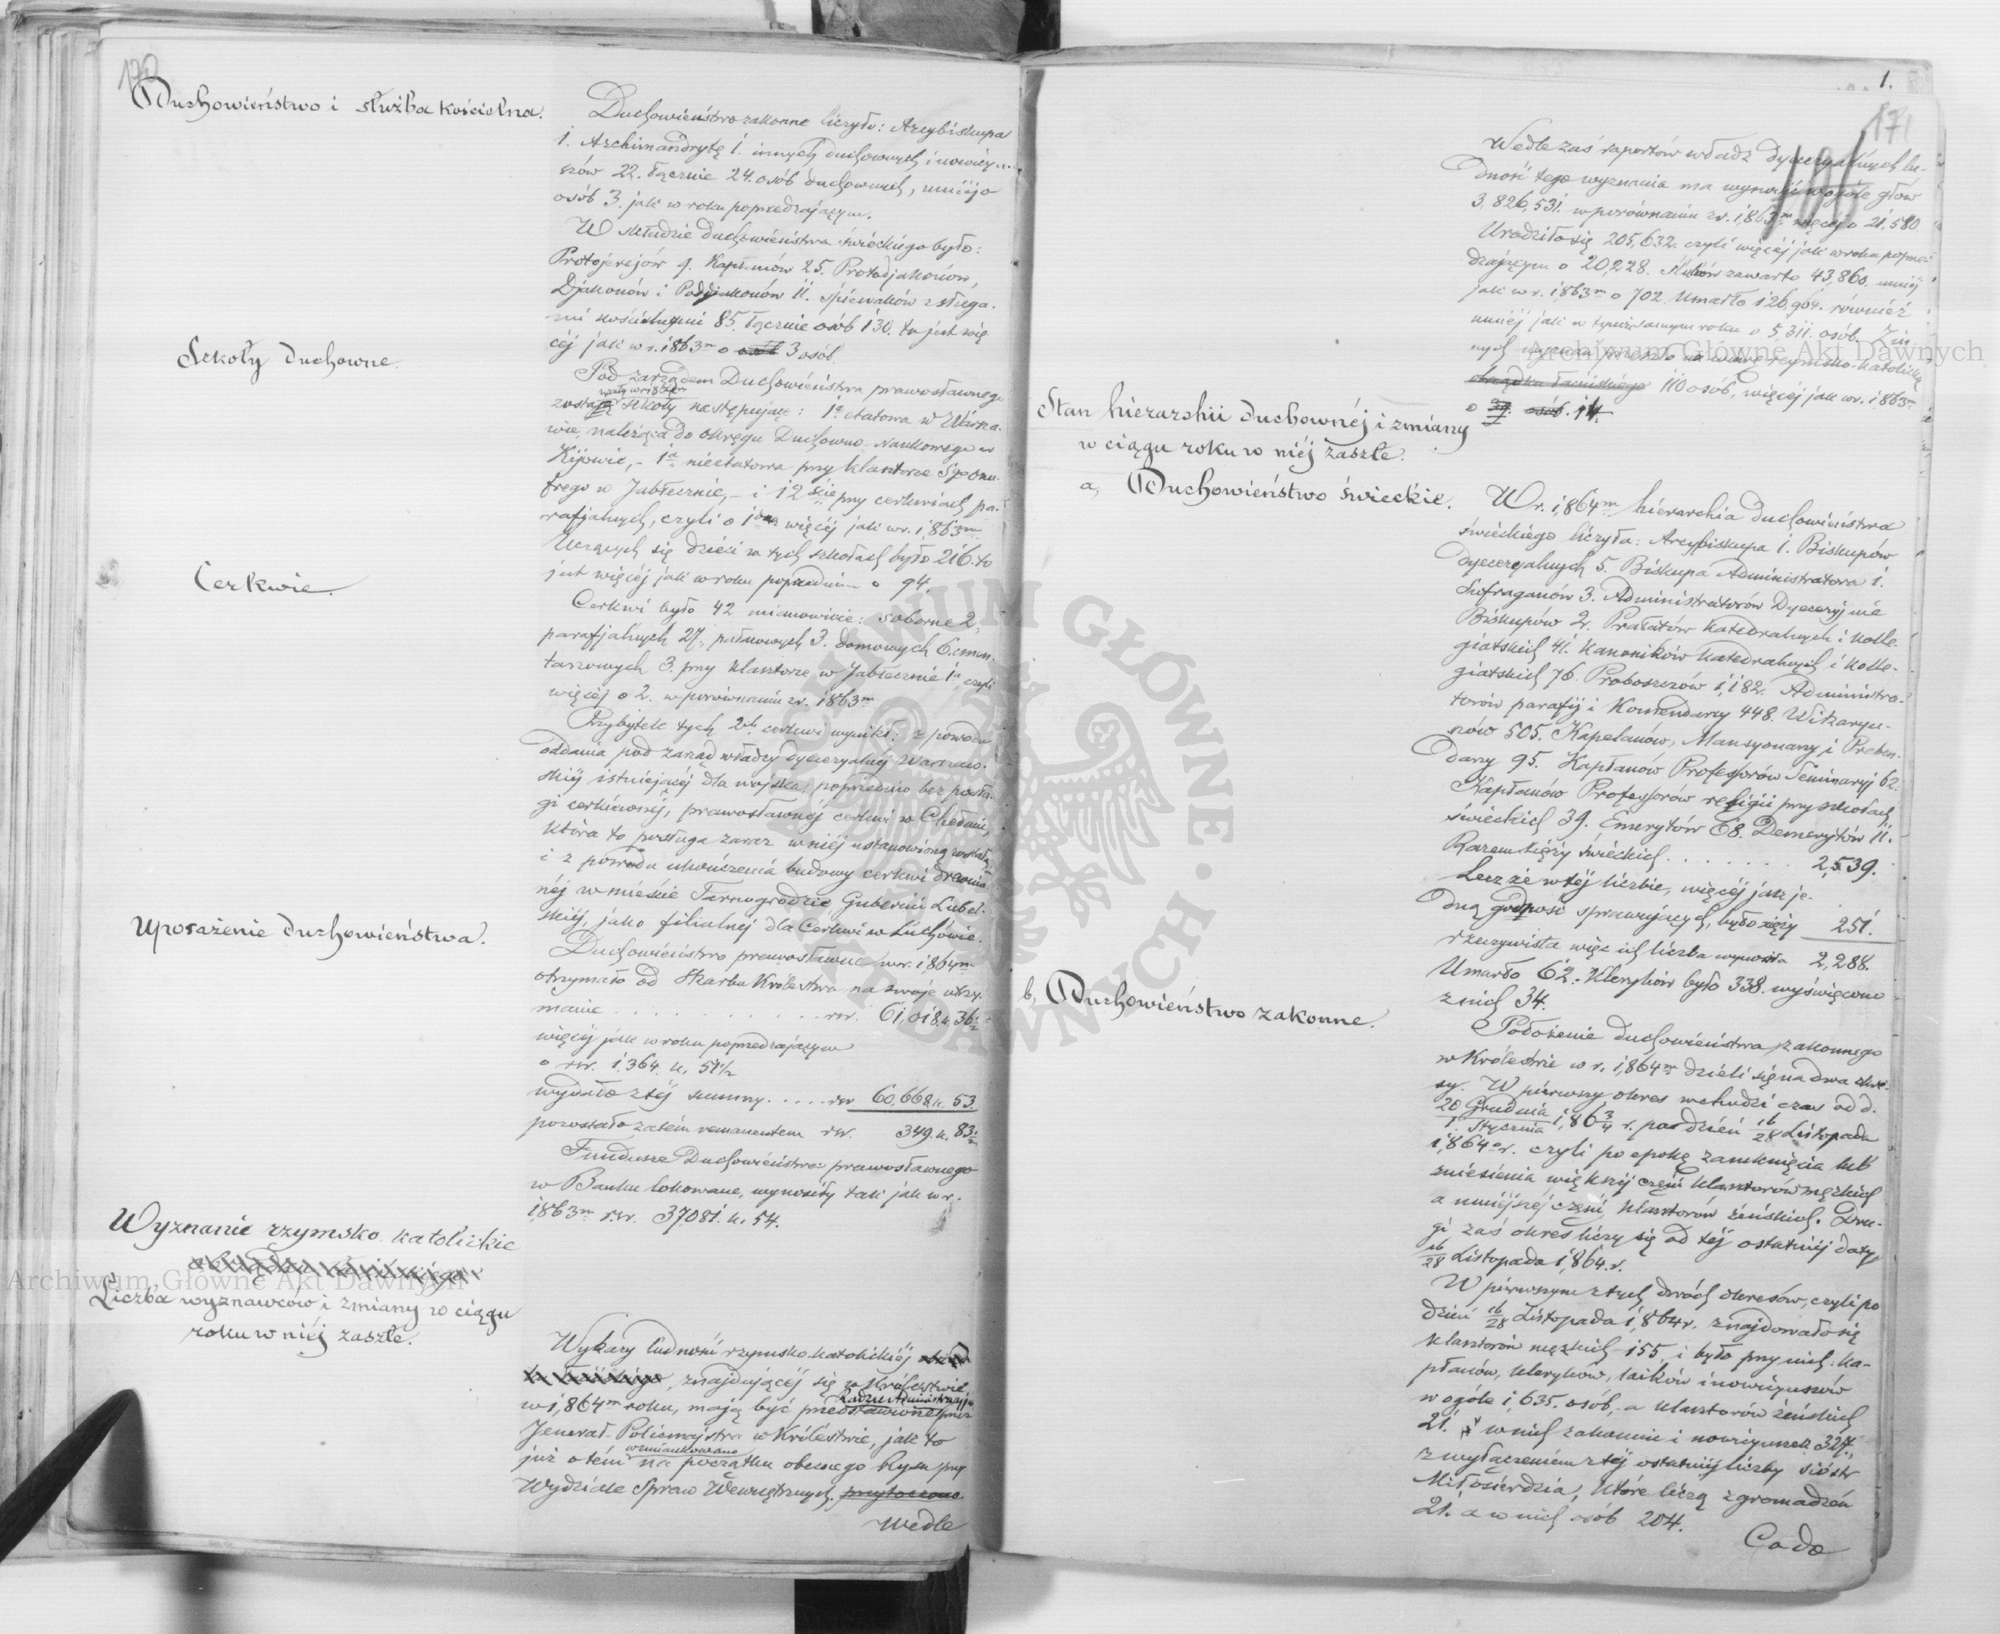 170
Duchowieństwo i służba kościelna.
Duchowieństwo zakonne liczyło: Arcybiskupa
1. Archimandrytę 1. innych duchownych i nowicyu-
szów 22. łącznie 24. osób duchownych, mniéj o
osób 3. jak w roku poprzedzającym.
W składzie duchowieństwa świeckiego było:
Protojerejów 9. Kapłanów 25. Protodjakonów,
Djakonów i Poddjakonów 11. śpiewaków z sługa-
mi kościelnymi 85. łącznie osób 130. to jest wię-
céj jak w r. 1863m o osób 3 osób.
Szkoły duchowne.
Pod zarządem Duchowieństwa prawosławnego
zostają szkoły następujące: 1a etatowa w Warsza-
wie, należąca do okręgu Duchowno-Naukowego w
Kijowie, - 1a nieetatowa przy klasztorze Sgo Onu-
frego w Jabłecznie, - i 12ście przy cerkwiach pa-
rafjalnych, czyli o 1dną więcéj jak w r. 1863m
Uczących się dzieci w tych szkołach było 216. to
jest więcéj jak w roku poprzednim o 94.
Cerkwie.
Cerkwi było 42 mianowicie: soborne 2,
parafjalnych 27, pułkowych 3. domowych 6. cmen-
tarzowych 3. przy klasztorze w Jabłecznie 1a, czyli
więcéj o 2. w porównaniu z r. 1863m
Przybytek tych 2ch cerkwi wynikł: z powodu
oddania pod zarząd władzy dyecezyalnéj Warszaw-
skiéj istniejącéj dla wojska, poprzednio bez posłu-
gi cerkiewnéj, prawosławnéj cerkwi w Chełmie,
która to posługa zaraz w niéj ustanowioną została,
i z powodu ukończenia budowy cerkwi drewnia-
néj w mieście Tarnogrodzie Gubernii Lubel-
skiéj, jako filialnéj dla Cerkwi w Luchowie.
Uposażenie duchowieństwa.
Duchowieństwo prawosławne w r. 1864m
otrzymało od Skarbu Królestwa na swoje utrzy-
manie . . . . . . . . . . rsr. 61,018, k. 36½
więcéj jak w roku poprzedzającym
o rsr. 1,364. k. 51½
wydało z téj summy . . . . . rsr 60,668. k. 53.
pozostało zatém remanentem rsr. 349. k. 83½
Fundusze Duchowieństwa prawosławnego
w Banku lokowane, wynosiły tak jak w r.
1863m rsr. 37081. k. 54.
Wyznanie rzymsko katolickie
Liczba wyznawców i zmiany w ciągu
roku w niéj zaszłe.
Wykazy ludności rzymsko katolickiéj
znajdującéj się w Królestwie
w 1,864m roku, mają być przedstawione Radzie Administracyjnéj przez
Jenerał-Policmajstra w Królestwie, jak to
już o tém wzmiankowano na początku obecnego Rysu przy
Wydziale Spraw Wewnętrznych. przytoczono.
Wedle
1.
171
Wedle zaś raportów władz Dyecezyalnych lu-
dność tego wyznania ma wynosić wogóle głów
3,826,531. w porównaniu z r. 1,863m więcéj o 21,580
Urodziło się 205,632. czyli więcéj jak w roku poprze-
dzającym o 20,228. Ślubów zawarto 43,860. mniéj
jak w r. 1,863m o 702. Umarło 126,964. również
mniéj jak w tymże samym roku o 5311. osób. Z in-
nych wyznań przeszło na wiarę rzymsko-katolicką
obrządku łacińskiego 110 osób, więcéj jak w r. 1,863m
o 14.
Stan hierarchii duchownéj i zmiany
w ciągu roku w niéj zaszłe.
a, Duchowieństwo świeckie.
W r. 1,864m hierarchia duchowieństwa
świeckiego liczyła: Arcybiskupa 1. Biskupów
Dyecezyalnych 5. Biskupa Administratora 1.
Sufraganów 3. Administratorów Dyecezyj nie
Biskupów 2. Prałatów Katedralnych i Kolle-
giatskich 41. Kanoników Katedralnych i Kolle-
giatskich 76. Proboszczów 1,182. Administra-
torów parafij i Komendarzy 448. Wikaryu-
szów 505. Kapelanów, Mansyonarzy i Preben-
darzy 95. Kapłanów Professorów Seminaryj 62.
Kapłanów Professorów religii przy szkołach
świeckich 39. Emerytów 68. Demerytów 11.
Razem księży świeckich . . . . . . . 2,539.
Lecz że w téj liczbie, więcéj jak je-
dną godność sprawujących, było księży 251.
rzeczywista więc ich liczba wynosiła 2,288.
Umarło 62. Kleryków było 338. wyświęcono
z nich 34.
b, Duchowieństwo zakonne.
Położenie duchowieństwa zakonnego
w Królestwie w r. 1,864m dzieli się na dwa okre-
sy. W pierwszy okres wchodzi czas od d.
20 Grudnia / 1 Stycznia 1,863/4 r. po dzień 16/28 Listopada
1,864o r. czyli po epokę zamknięcia lub
zniesienia większéj części klasztorów męzkich
a mniéjszéj części klasztorów żeńskich. Dru-
gi zaś okres liczy się od téj ostatniéj daty
16/28 Listopada 1,864. r.
W pierwszym z tych dwóch okresów, czyli po
dzień 16/28 Listopada 1,864 r. znajdowało się
klasztorów męzkich 155, i było przy nich: ka-
płanów, kleryków, laików i nowicyuszów
w ogóle 1,635. osób, a klasztorów żeńskich
21. w nich zakonnic i nowicyuszek 327,
z wyłączeniem z téj ostatniéj liczby sióstr
Miłosierdzia, które liczą zgromadzeń
21. a w nich osób 204.
Co do
Archiwum Główne Akt Dawnych
Archiwum Główne Akt Dawnych
ARCHIWUM GŁÓWNE AKT DAWNYCH